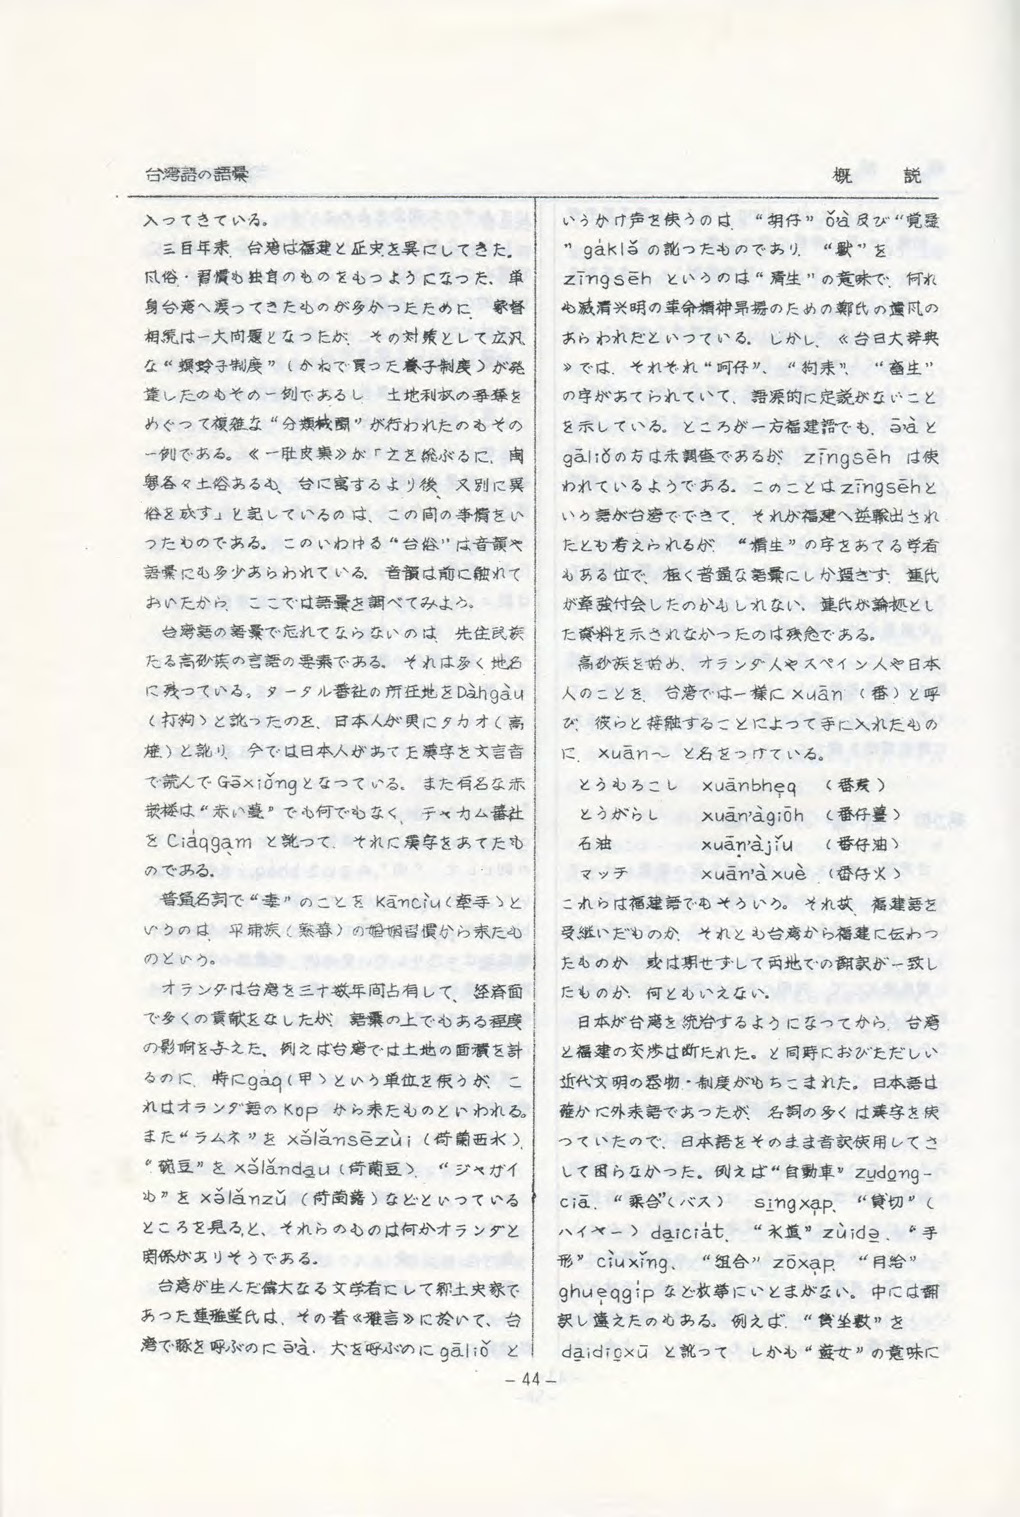 台湾語の語彙
概 説
入ってきている。
三百年来、台湾は福建と歴史を異にしてきた。
風俗・習慣も独自のものをもつようになった。単
身台湾へ渡ってきたものが多かったために、家督
相続は一大問題となったが、その対策として広汎
な“螟蛉子制度”(かねで買った養子制度)が発
達したのもその一例であるし、土地利权の争奪を
めぐって複雑な“分類械鬪”が行われたのもその
一例である。《一肚皮集》が「之を総ぶるに、閩
粤各々土俗あるも、台に寓するより後、又別に異
俗を成す」と記しているのは、この間の事情をい
ったものである。このいわゆる“台俗”は音韻や
語彙にも多少あらわれている。音韻は前に触れて
おいたから、ここでは語彙を調べてみよう。
台湾語の語彙で忘れてならないのは、先住民族
たる高砂族の言語の要素である。それは多く地名
に残っている。タータル蕃社の所在地をDàhgàu
(打狗)と訛ったのを、日本人が更にタカオ(高
雄)と訛り、今では日本人があてた漢字を文言音
で読んでGāxiǒngとなっている。また有名な赤
嵌楼は“赤い甍”でも何でもなく、チャカム蕃社
をCiáqgạmと訛って、それに漢字をあてたも
のである。
普通名詞で“妻”のことをkāncìu(牽手)と
いうのは、平埔族(熟蕃)の婚姻習慣から来たも
のという。
オランダは台湾を三十数年間占有して、経済面
で多くの貢献をなしたが、語彙の上でもある程度
の影响を与えた。例えば台湾では土地の面積を計
るのに、特にgaq(甲)という単位を使うが、こ
れはオランダ語のKopから来たものといわれる。
また“ラムネ”をxǒlǎnsēzùi(荷蘭西水)、
“豌豆”をxǒlǎndạu(荷蘭豆)、“ジャガイ
も”をxǒlǎnzǔ(荷蘭藷)などといっている
ところを見ると、それらのものは何かオランダと
関係がありそうである。
台湾が生んだ偉大なる文学者にして郷土史家で
あった連雅堂氏は、その著《雅言》に於いて、台
湾で豚を呼ぶのにə̄'à、犬を呼ぶのにgāliǒと
いうかけ声を使うのは、“胡仔”ǒà及び“覚羅
”gáklǒの訛ったものであり、“獣”を
zīngsēhというのは“清生”の意味で、何れ
も滅清兴明の革命精神昂揚のための鄭氏の遺風の
あらわれだといっている。しかし、《台日大辞典
》では、それぞれ“呵仔”、“狗来”、“畜生”
の字があてられていて、語源的に定説がないこと
を示している。ところが一方福建語でも、ə̄'àと
gāliǒの方は未調査であるが、zīngsēhは使
われているようである。このことはzīngsēhと
いう語が台湾でできて、それが福建へ逆輸出され
たとも考えられるが、“精生”の字をあてる学者
もある位で、極く普通な語彙にしか過ぎず、連氏
が牽強付会したのかもしれない。連氏が論拠とし
た資料を示されなかったのは残念である。
高砂族を始め、オランダ人やスペイン人や日本
人のことを、台湾では一様にxuān(番)と呼
び、彼らと接触することによって手に入れたもの
に、xuān〜と名をつけている。
とうもろこし xuānbhẹq (番麦)
とうがらし xuān'àgiōh (番仔薑)
石油 xuān'àjǐu (番仔油)
マッチ xuān'àxuè (番仔火)
これらは福建語でもそういう。それ故、福建語を
受継いだものか、それとも台湾から福建に伝わっ
たものか、或は期せずして両地での翻訳が一致し
たものか、何ともいえない。
日本が台湾を統治するようになってから、台湾
と福建の交渉は断たれた。と同時におびただしい
近代文明の器物・制度がもちこまれた。日本語は
確かに外来語であったが、名詞の多くは漢字を使
っていたので、日本語をそのまま音訳使用してさ
して困らなかった。例えば“自動車”zụdọng-
ciā、“乗合”(バス) sịngxạp、“貸切”(
ハイヤー) dạiciát、“水道”zùidə̣、“手
形”cìuxǐng、“組合”zōxạp、“月給”
ghuẹqgípなど枚挙にいとまがない。中には翻
訳し違えたのもある。例えば、“貸坐敷”を
dạidiọxūと訛って、しかも“遊女”の意味に
- 44 -